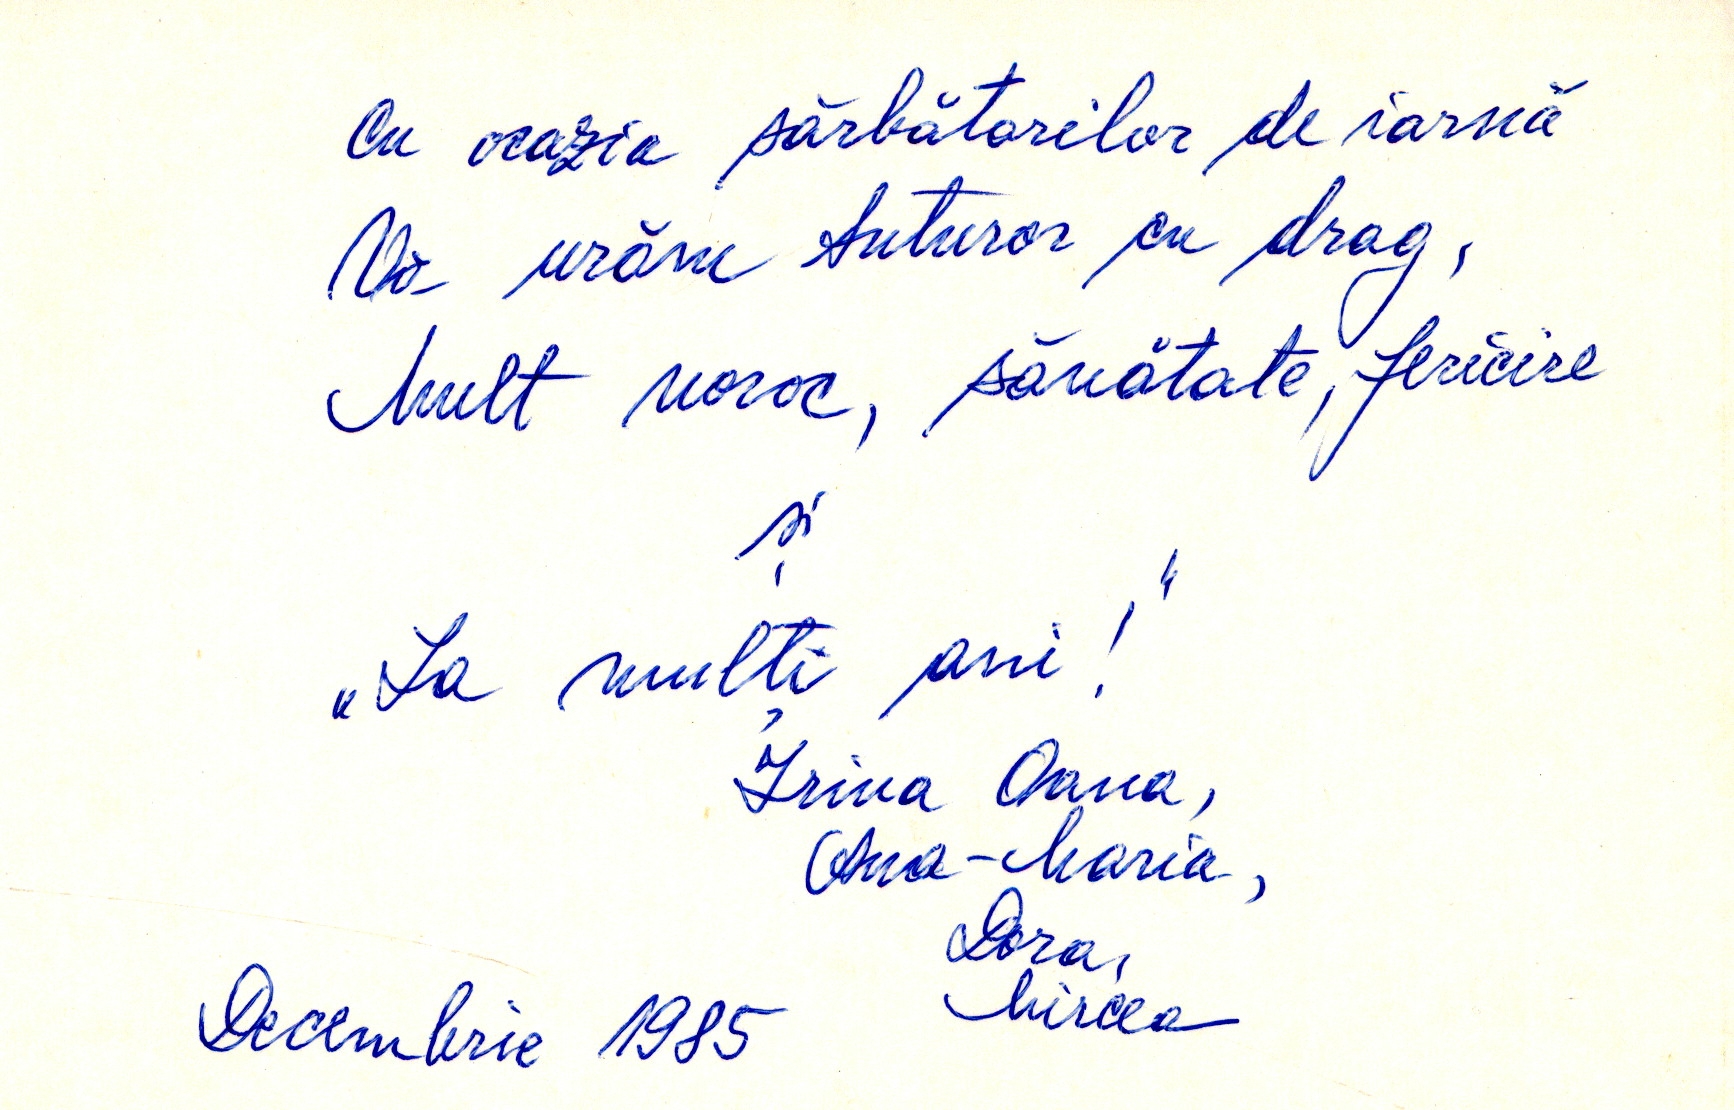 Cu ocazia sărbătorilor de iarnă
Vă urăm tuturor cu drag,
Mult noroc, sănătate, fericire
și
„La mulți ani!"
Irina Oana,
Ana-Maria,
Dora,
Mircea
Decembrie 1985